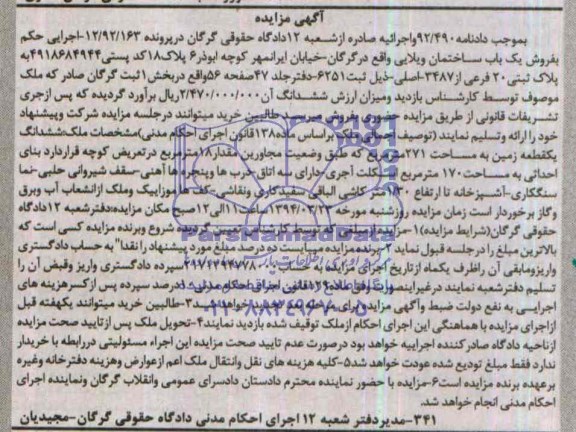 آگهی مزایده
بموجب دادنامه ۹۲/۴۹۰ واجرائیه صادره ازشعبه ۱۲دادگاه حقوقی گرگان درپرونده ۱۲/۹۲/۱۶۳-اجرایی حکم
بفروش یک باب ساختمان ویلایی واقع درگرگان-خیابان ایرانمهر کوچه ابوذر۶ پلاک۱۸کد پستی۴۹۱۸۶۸۴۹۴۴به
پلاک ثبتی۲۰ فرعی از۳۴۸۷-اصلی-ذیل ثبت۶۲۵۱-دفترجلد ۴۷صفحه ۵۶واقع دربخش۱ثبت گرگان صادر که ملک
موصوف توسط کارشناس بازدید ومیزان ارزش ششدانگ آن ۲/۴۷۰/۰۰۰/۰۰۰ریال برآورد گردیده که پس ازجری
تشریفات قانونی از طریق مزایده حضوری بفروش میرسد طالبین خرید میتوانند درجلسه مزایده شرکت وپیشنهاد
خود راارائه وتسلیم نمایند (توصیف اجمالی ملک براساس ماده۱۳۸قانون اجرای احکام مدنی)مشخصات ملک:ششدانگ
یکقطعه زمین به مساحت ۲۷۱مترمربع که طبق وضعیت مجاورین مقدار۱۸مترمربع درتعریض کوچه قراردارد بنای
احداثی به مساحت۱۷۰ مترمربع با اسکلت آجری-دارای سه اتاق-درب ها وپنجره ها آهنی-سقف شیروانی حلبی-نما
سنگکاری-آشپزخانه تا ارتفاع ۱/۳۰متر کاشی الباقی سفیدکاری ونقاشی-کف ها موزاییک وملک ازانشعاب آب وبرق
وگاز برخوردار است زمان مزایده روزشنبه مورخه ۱۳۹۳/۰۳/۲۴ ساعت۱۱الی۱۲صبح مکان مزایده:دفترشعبه ۱۲دادگاه
حقوقی گرگان(شرایط مزایده)۱-مزایده ازمبلغی که توسط کارشناس تعیین گردیده شروع وبرنده مزایده کسی است که
بالاترین مبلغ را درجلسه قبول نماید ۲-برنده مزایده میبایست ده درصد مبلغ مورد پیشنهاد رانقدا" به حساب دادگستری
واریزومابقی آن راظرف یکماه ازتاریخ اجرای مزایده به حساب سپرده دادگستری واریز وقبض آن را
تسلیم دفترشعبه نمایند درغیراینصورت وفق ماده۱۲۹قانون اجرای احکام مدنی ده درصد سپرده پس ازکسرهزینه های
اجرایی به نفع دولت ضبط وآگهی مزایده برای مرحله خواهدشد ۳-طالبین خرید میتوانند یکهفته قبل
ازاجرای مزایده با هماهنگی این اجرای احکام ازملک توقیف شده بازدید نمایند۴-تحویل ملک پس ازتایید صحت مزایده
ازناحیه دادگاه صادرکننده اجراییه خواهد بود درصورت عدم تایید صحت مزایده این اجراء مسئولیتی دررابطه با خریدار
ندارد فقط مبلغ تودیع شده عودت خواهد شد۵-کلیه هزینه های نقل وانتقال ملک اعم ازعوارض وهزینه دفترخانه وغیره
برعهده برنده مزایده است۶-مزایده با حضور نماینده محترم دادستان دادسرای عمومی وانقلاب گرگان ونماینده اجرای
احکام مدنی انجام خواهد شد.
۳۴۱-مدیردفتر شعبه ۱۲ اجرای احکام مدنی دادگاه حقوقی گرگان-مجیدیان
ParsNamadData